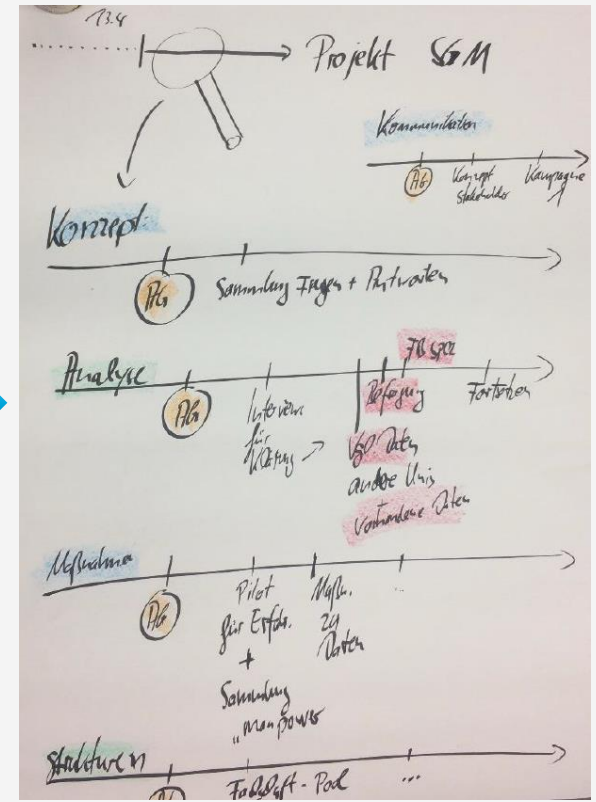 13.4
Projekt SGM
Kommunikation
AG
Konzept
Stakeholder
Kampagne
Konzept
AG
Sammlung Fragen + Antworten
Analyse
AG
Interviews
für
Klärung
Befragung
Vgl. Daten
andere Unis
vorhandene Daten
Fortsetzen
Maßnahme
AG
Pilot
für Erfahr.
+
Sammlung
„manpower
Maßn.
zu
Daten
...
Strukturen
AG
...